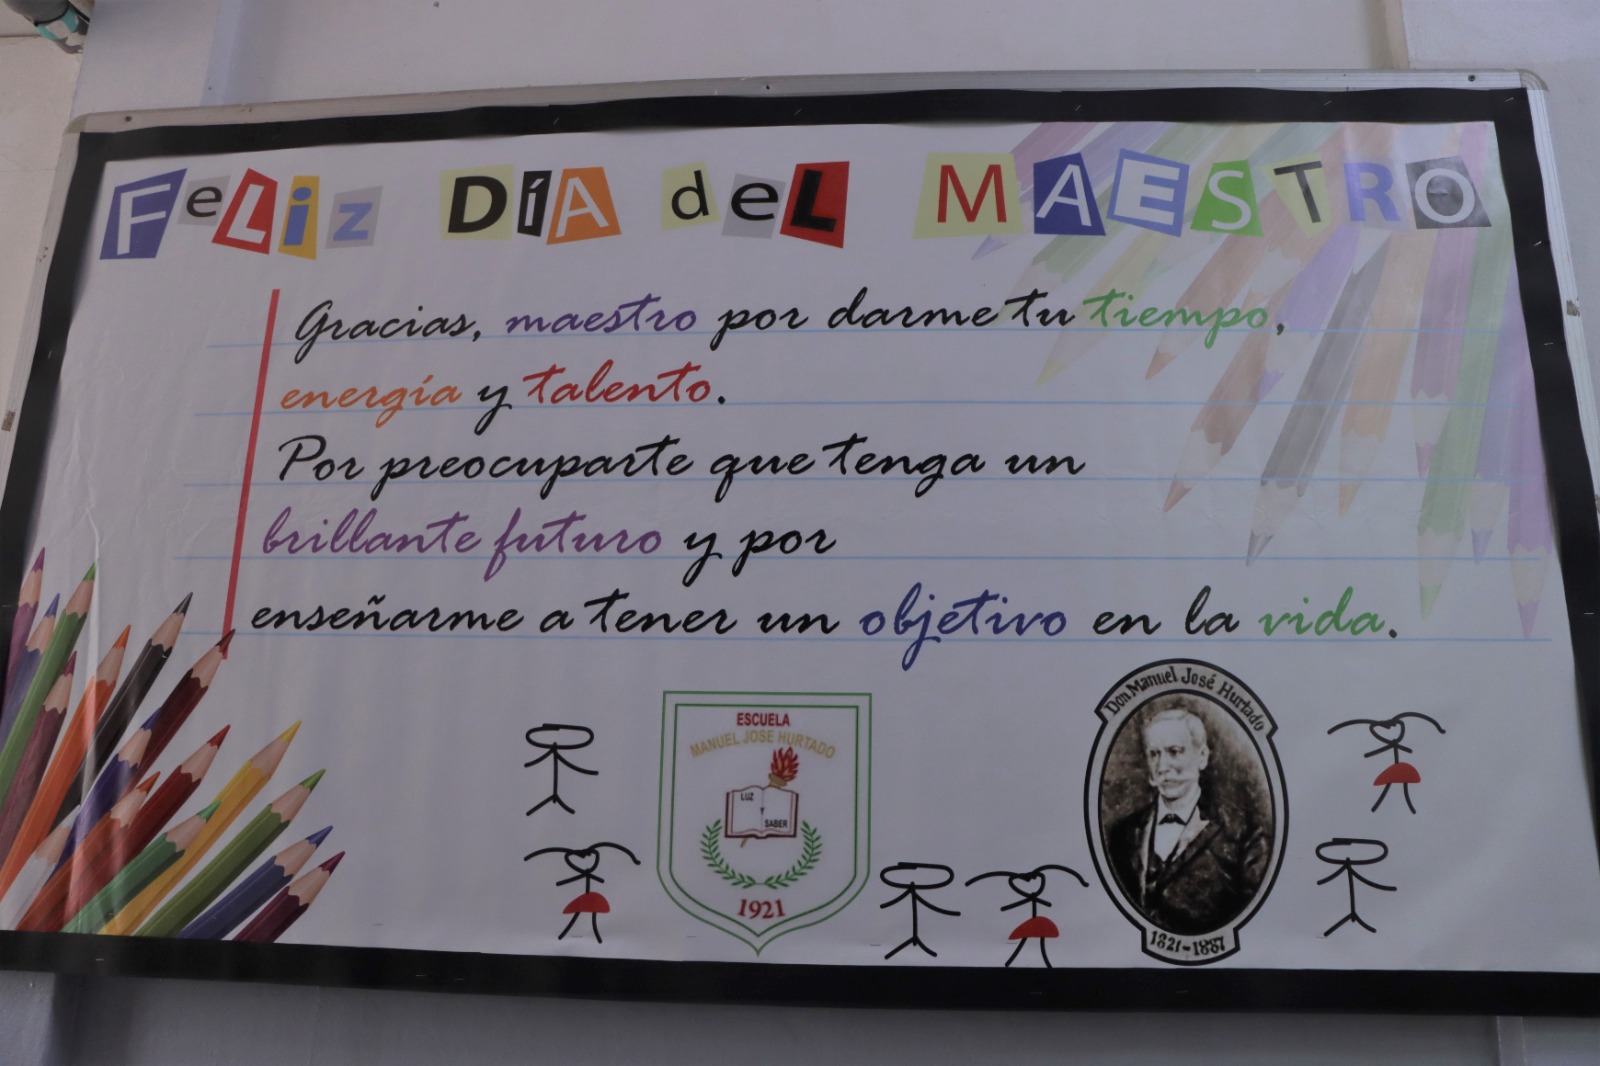 FeLiz DÍA deL MAESTRO
Gracias, maestro por darme tu tiempo,
energía y talento.
Por preocuparte que tenga un
brillante futuro y por
enseñarme a tener un objetivo en la vida.
ESCUELA
MANUEL JOSE HURTADO
LUZ
Y
SABER
1921
Don Manuel José Hurtado
1821-1887